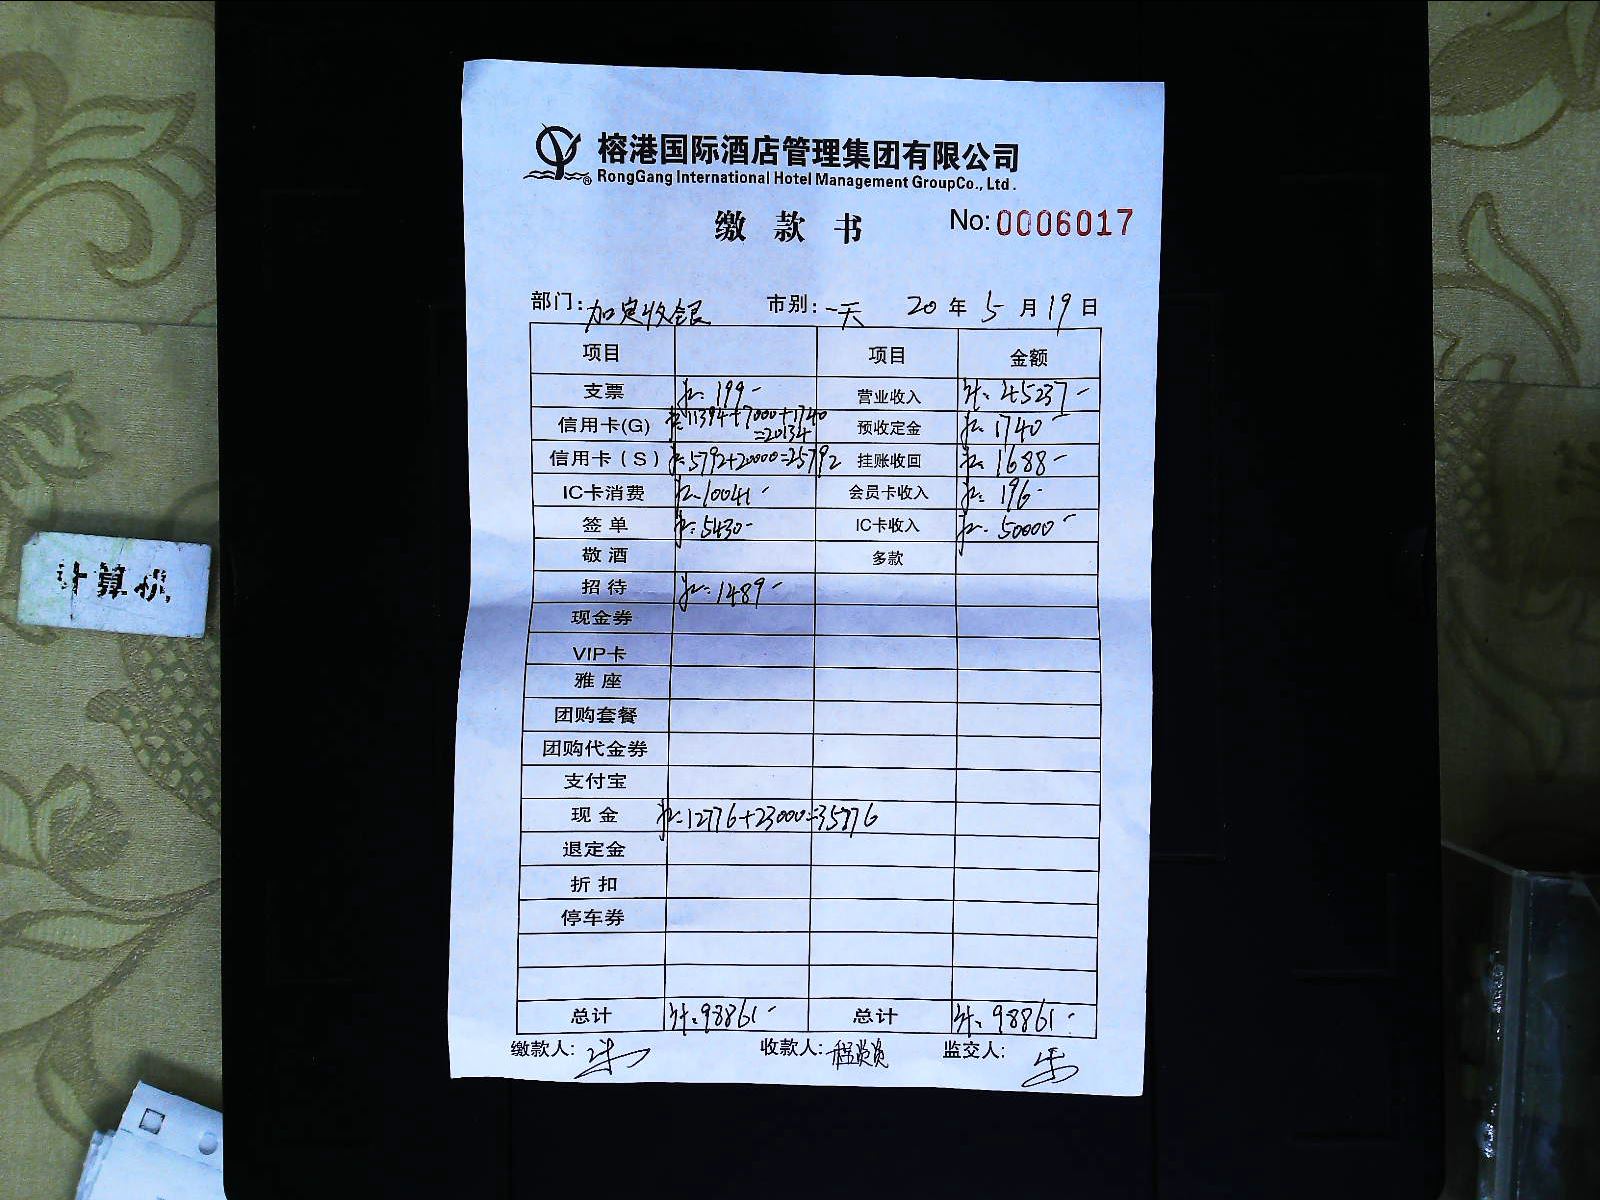 榕港国际酒店管理集团有限公司
RongGang International Hotel Management GroupCo., Ltd.
缴款书 No:0006017
部门:加定收银 市别:一天 20年5月19日
项目 项目 金额
支票 199- 营业收入 45237-
信用卡(G) 11394+7000+1740=20134 预收定金 1740-
信用卡(S) 5792+20000=25792 挂账收回 1688-
IC卡消费 10041- 会员卡收入 196-
签单 5430- IC卡收入 50000-
敬酒 多款
招待 1489-
现金券
VIP卡
雅座
团购套餐
团购代金券
支付宝
现金 12776+23000=35776
退定金
折扣
停车券
总计 98861- 总计 98861-
缴款人: 收款人: 监交人:
计算机